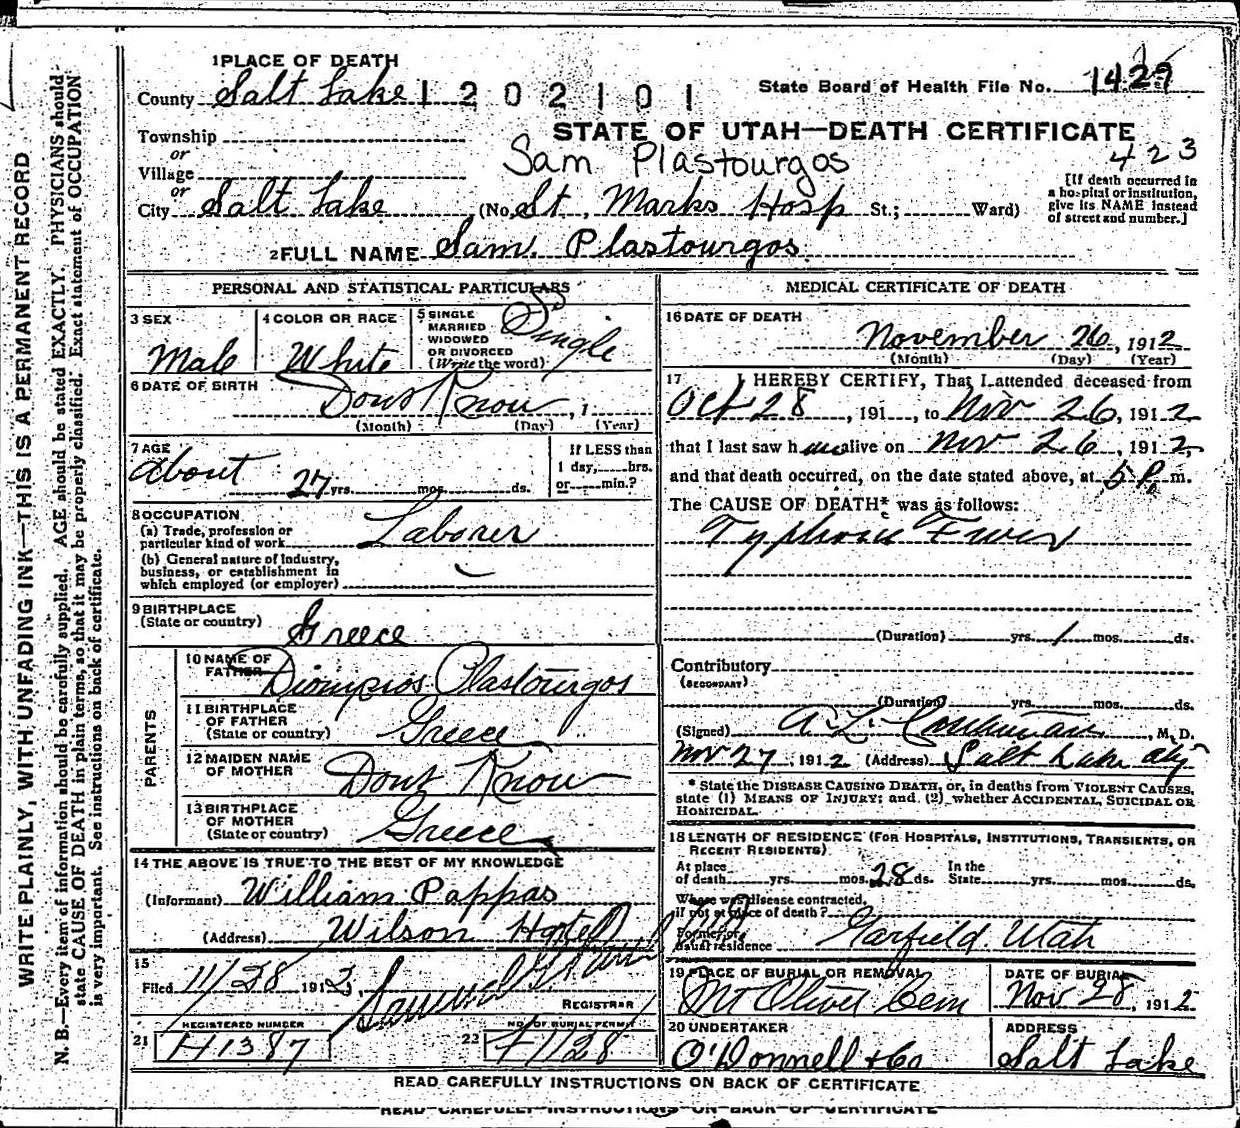 1 PLACE OF DEATH
County Salt Lake 1 2 0 2 1 0 1
State Board of Health File No. 1429
Township
or
Village
or
City Salt Lake (No. St. Marks Hosp St.; Ward)
STATE OF UTAH—DEATH CERTIFICATE
Sam Plastourgos
423
[If death occurred in
a hospital or institution,
give its NAME instead
of street and number.]
2 FULL NAME Sam. Plastourgos.
PERSONAL AND STATISTICAL PARTICULARS
3 SEX
Male
4 COLOR OR RACE
White
5 SINGLE
MARRIED
WIDOWED
OR DIVORCED
(Write the word)
Single
6 DATE OF BIRTH
Dont Know, 1
(Month) (Day) (Year)
7 AGE
about 27 yrs. mos. ds.
If LESS than
1 day, hrs.
or min.?
8 OCCUPATION
(a) Trade, profession or
particular kind of work Laborer
(b) General nature of industry,
business, or establishment in
which employed (or employer)
9 BIRTHPLACE
(State or country)
Greece
PARENTS
10 NAME OF
FATHER Plastourgos
11 BIRTHPLACE
OF FATHER
(State or country) Greece
12 MAIDEN NAME
OF MOTHER Dont Know
13 BIRTHPLACE
OF MOTHER
(State or country) Greece
14 THE ABOVE IS TRUE TO THE BEST OF MY KNOWLEDGE
(Informant) William Pappas
(Address) Wilson Hotel
15
Filed 11/28 1912,
REGISTRAR
REGISTERED NUMBER
21 H1387
NO. OF BURIAL PERMIT
22 H1128
MEDICAL CERTIFICATE OF DEATH
16 DATE OF DEATH
November 26, 1912
(Month) (Day) (Year)
17 I HEREBY CERTIFY, That I attended deceased from
Oct 28, 191, to Nov 26, 1912
that I last saw him alive on Nov 26, 1912,
and that death occurred, on the date stated above, at 5 P. m.
The CAUSE OF DEATH* was as follows:
Typhoid Fever
(Duration) yrs. 1 mos. ds.
Contributory
(SECONDARY)
(Duration) yrs. mos. ds.
(Signed) A. L. M. D.
Nov 27, 1912 (Address) Salt Lake City
* State the DISEASE CAUSING DEATH, or, in deaths from VIOLENT CAUSES,
state (1) MEANS OF INJURY; and (2) whether ACCIDENTAL, SUICIDAL OR
HOMICIDAL.
18 LENGTH OF RESIDENCE (FOR HOSPITALS, INSTITUTIONS, TRANSIENTS, OR
RECENT RESIDENTS)
At place
of death yrs. mos. 28 ds.
In the
State yrs. mos. ds.
Where was disease contracted,
if not at place of death?
Former or
usual residence Garfield. Utah
19 PLACE OF BURIAL OR REMOVAL
Mt Olivet Cem
DATE OF BURIAL
Nov 28, 1912
20 UNDERTAKER
O'Donnell & Co
ADDRESS
Salt Lake
READ CAREFULLY INSTRUCTIONS ON BACK OF CERTIFICATE
READ CAREFULLY INSTRUCTIONS ON BACK OF CERTIFICATE
WRITE PLAINLY, WITH UNFADING INK—THIS IS A PERMANENT RECORD
N. B.—Every item of information should be carefully supplied. AGE should be stated EXACTLY. PHYSICIANS should
state CAUSE OF DEATH in plain terms, so that it may be properly classified. Exact statement of OCCUPATION
is very important. See instructions on back of certificate.